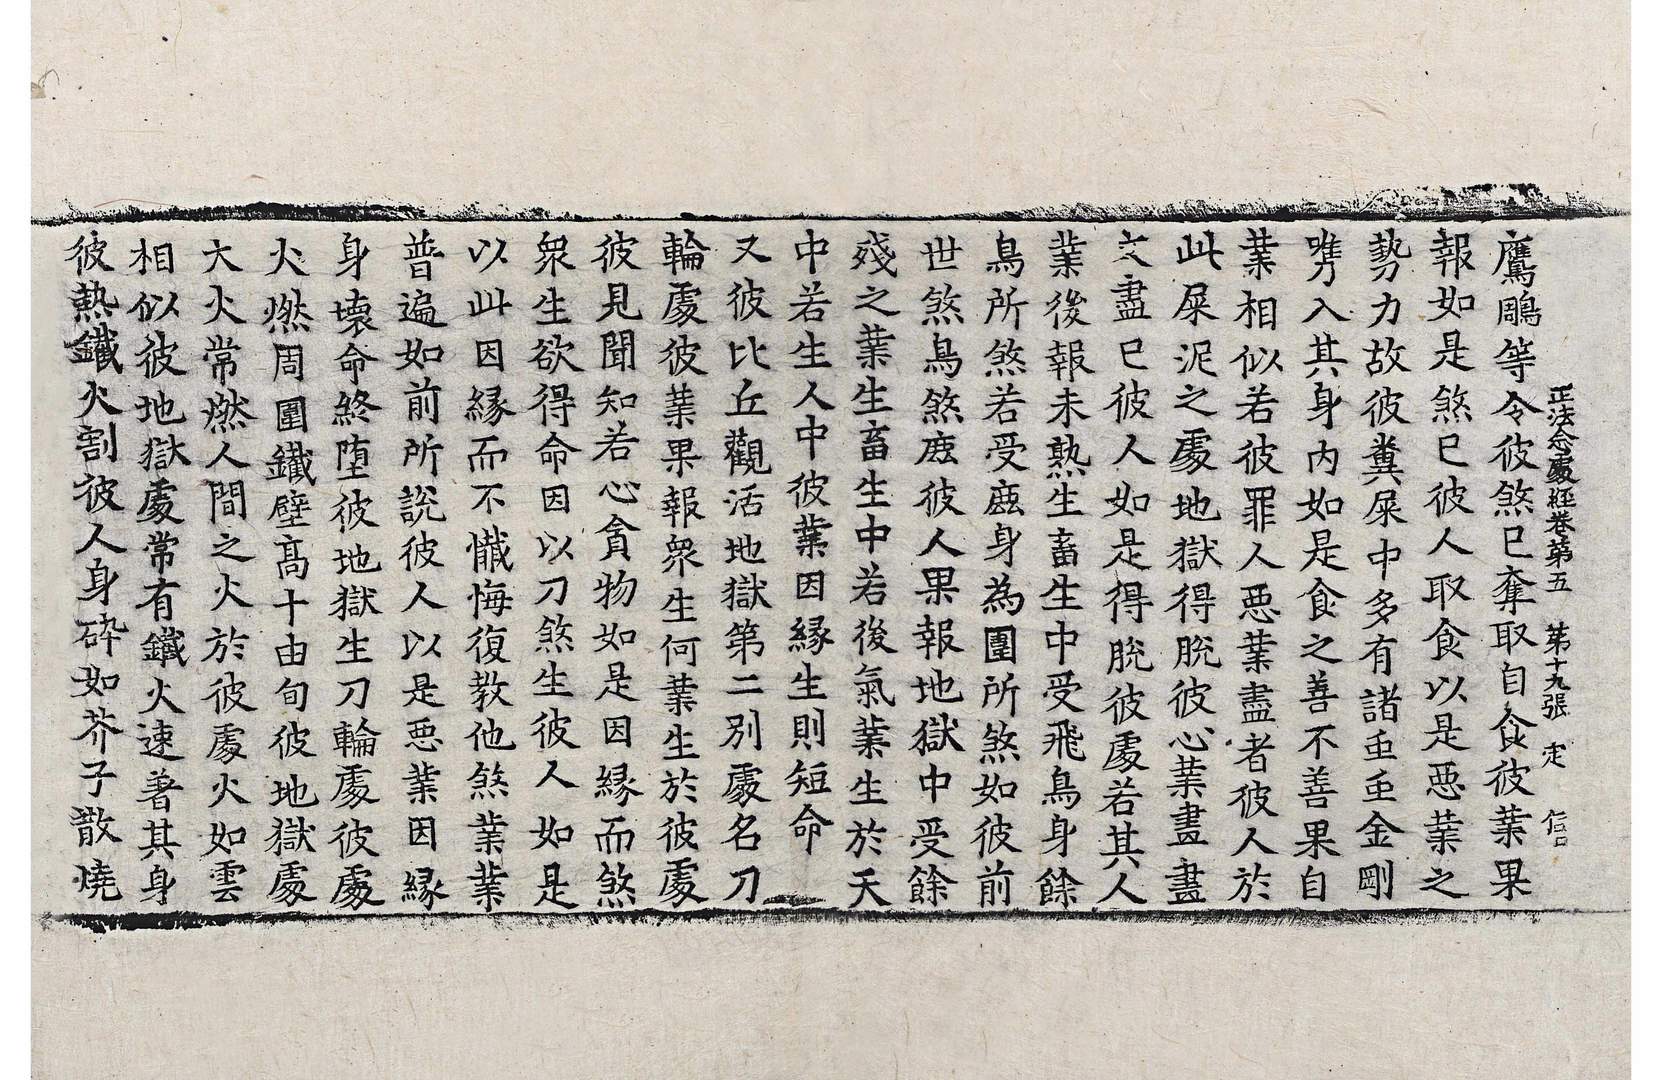 正法念處經卷第五 第十九張 定
鷹鵰等令彼煞已奪取自食彼業果
報如是煞已彼人取食以是惡業之
勢力故彼糞屎中多有諸虫虫金剛
嘴入其身内如是食之善不善果自
業相似若彼罪人惡業盡者彼人於
此屎泥之處地獄得脫彼心業畫畫
文盡已彼人如是得脫彼處若其人
業後報未熟生畜生中受飛鳥身餘
鳥所煞若受鹿身為圍所煞如彼前
世煞鳥煞鹿彼人果報地獄中受餘
殘之業生畜生中若後氣業生於天
中若生人中彼業因緣生則短命
又彼比丘觀活地獄第二別處名刀
輪處彼業果報衆生何業生於彼處
彼見聞知若心貪物如是因緣而煞
衆生欲得命因以刀煞生彼人如是
以此因緣而不懺悔復教他煞業業
普遍如前所說彼人以是惡業因緣
身壞命終墮彼地獄生刀輪處彼處
火燃周圍鐵壁高十由旬彼地獄處
大火常燃人間之火於彼處火如雲
相似彼地獄處常有鐵火速著其身
彼熱鐵火割彼人身碎如芥子散燒